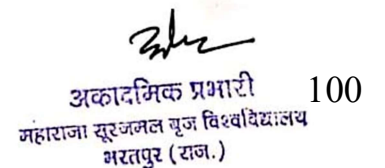 अकादमिक प्रभारी 100
महाराजा सूरजमल बृज विश्वविद्यालय
भरतपुर (राज.)